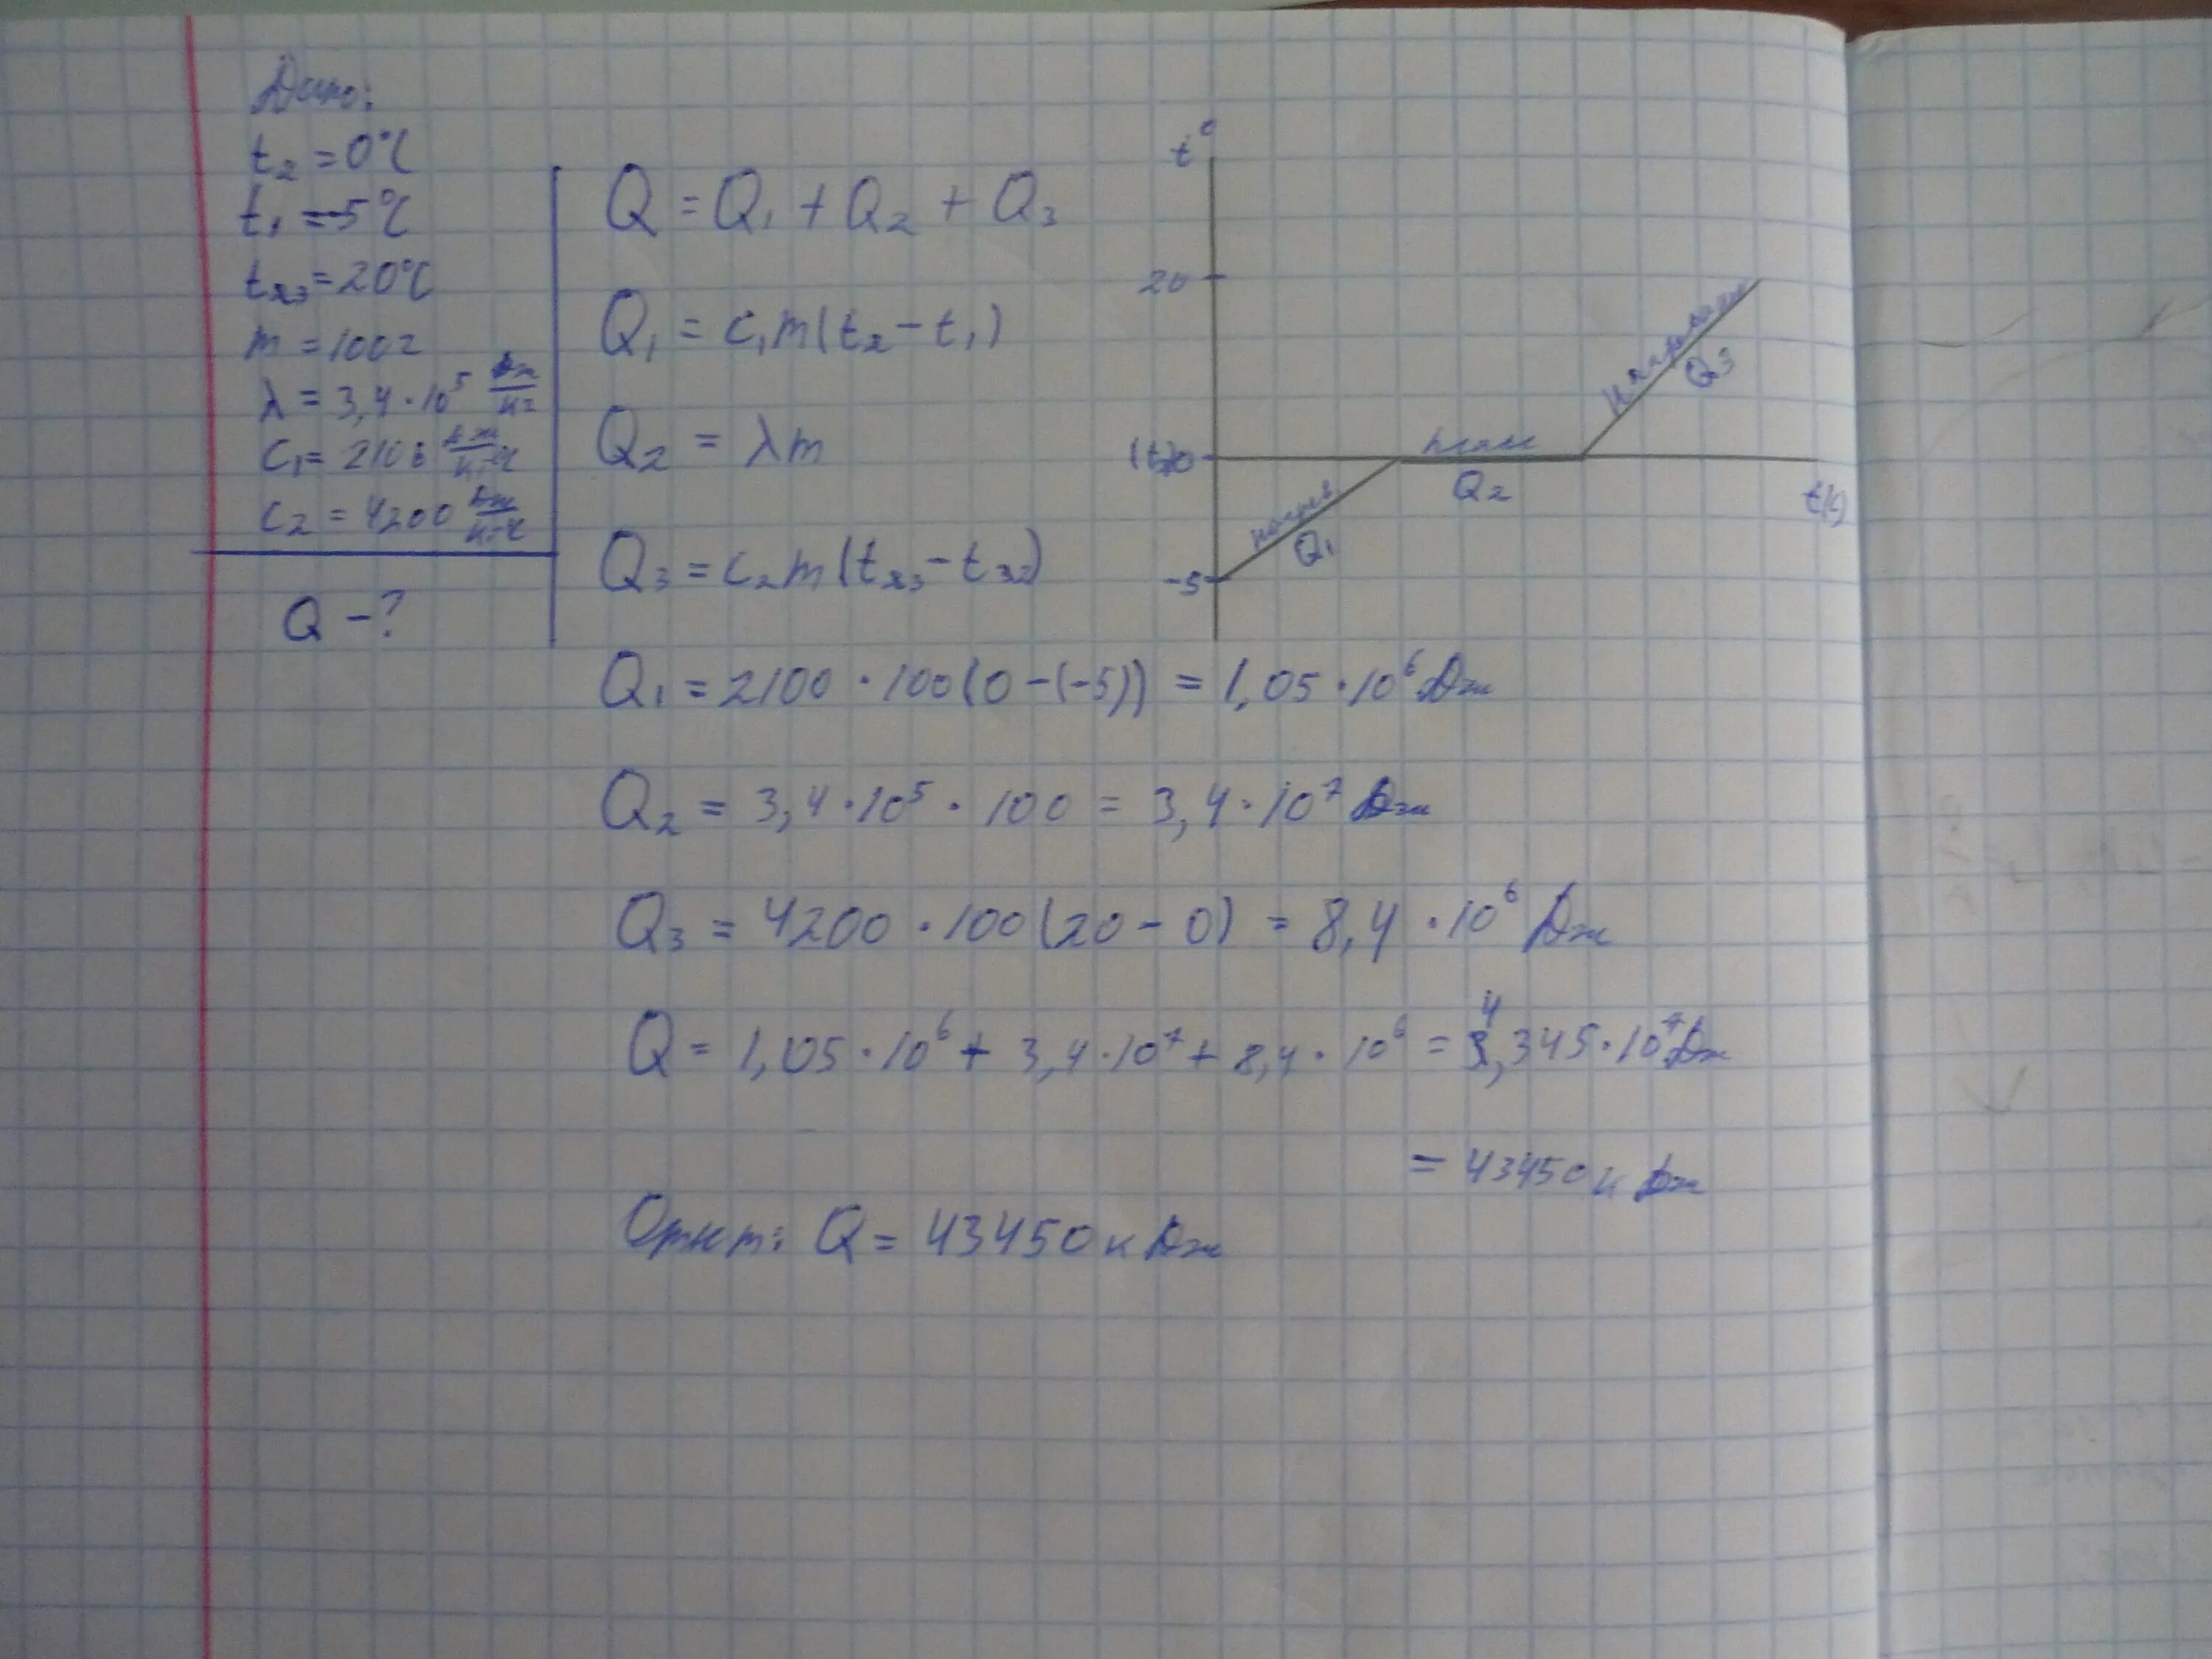 Дано:
t₂ = 0℃
t₁ = -5℃
t₃ = 20℃
m = 100г
λ = 3,4 · 10⁵ Дж/кг
c₁ = 2100 Дж/кг℃
c₂ = 4200 Дж/кг℃
Q - ?
Q = Q₁ + Q₂ + Q₃
Q₁ = c₁m(t₂ - t₁)
Q₂ = λm
Q₃ = c₂m(t₃ - t₂)
t°
20
0
-5
t(c)
нагрев
Q₁
плав
Q₂
Q₃
Q₁ = 2100 · 100(0 - (-5)) = 1,05 · 10⁶ Дж
Q₂ = 3,4 · 10⁵ · 100 = 3,4 · 10⁷ Дж
Q₃ = 4200 · 100(20 - 0) = 8,4 · 10⁶ Дж
Q = 1,05 · 10⁶ + 3,4 · 10⁷ + 8,4 · 10⁶ = 4,345 · 10⁷ Дж
= 43450 кДж
Ответ: Q = 43450 кДж